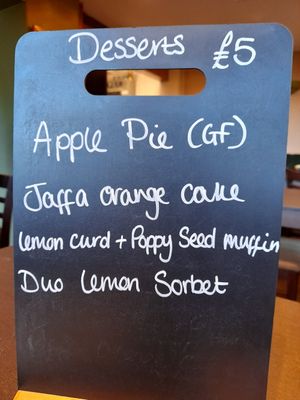 Desserts £5
Apple Pie (GF)
Jaffa orange cake
lemon curd + Poppy Seed muffin
Duo lemon Sorbet